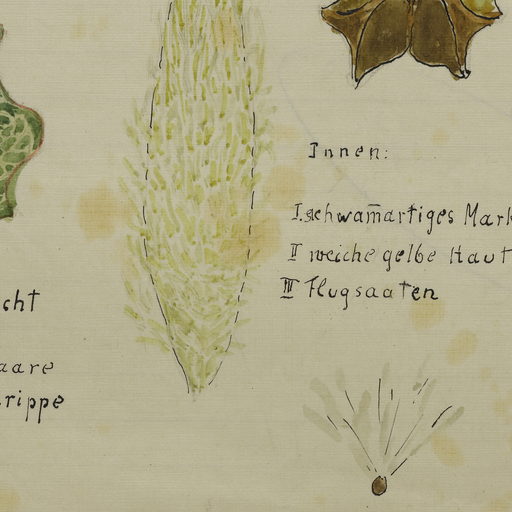 Innen:
I. schwam̅artiges Mark
II weiche gelbe Haut
III Flugsaaten
cht
aare
rippe